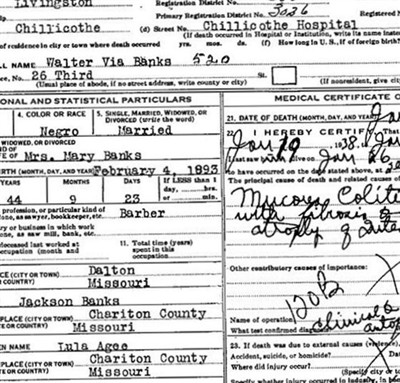 Livingston
Registration District No.
Primary Registration District No. 3026
Registered N
Chillicothe (d) Street No. Chillicothe Hospital
(If death occurred in Hospital or Institution, write its name inste
of residence in city or town where death occurred yrs. mos. ds. (f) How long in U. S., if of foreign birth?
LL NAME Walter Via Banks 520
o. 26 Third St.
(Usual place of abode, if no street address, write county or city) (If nonresident, give city
ONAL AND STATISTICAL PARTICULARS
MEDICAL CERTIFICATE O
4. COLOR OR RACE
5. SINGLE, MARRIED, WIDOWED, OR
DIVORCED (write the word)
Negro Married
21. DATE OF DEATH (MONTH, DAY, AND YEAR) Ja
22. I HEREBY CERTIFY
WIDOWED, OR DIVORCED
Mrs. Mary Banks
Jan 19 1938
Jan 26
BIRTH (MONTH, DAY, AND YEAR) February 4, 1893
to have occurred on the date stated above, at
The principal cause of death and related causes of
YEARS MONTHS DAYS If LESS than 1
day, hrs.
or min.
44 9 23
Mucous Colitis
with fibrosis &
atrophy of
profession, or particular kind of
done, as sawyer, bookkeeper, etc. Barber
ry or business in which work
done, as saw mill, bank, etc.
deceased last worked at
occupation (month and
11. Total time (years)
spent in this
occupation
Other contributory causes of importance:
ACE (CITY OR TOWN) Dalton
OR COUNTRY) Missouri
120B
Jackson Banks
PLACE (CITY OR TOWN) Chariton County
STATE OR COUNTRY) Missouri
Name of operation
What test confirmed diagnosis? clinical &
autop
EN NAME Lula Agee
23. If death was due to external causes (violence),
Accident, suicide, or homicide?
PLACE (CITY OR TOWN) Chariton County
OR COUNTRY) Missouri
Where did injury occur?
(Specify city or
Specify whether injury occurred in industry, in